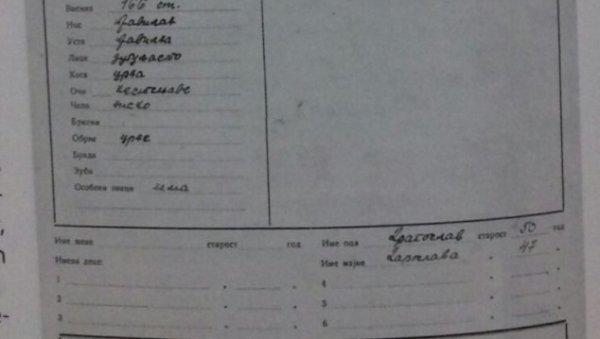 Висина 166 cm.
Нос правилан
Уста правилна
Лице дугуљасто
Коса црна
Очи кестењаве
Чело ниско
Бркови
Обрве црне
Брада
Зуби
Особени знаци има
Име жене старост год Име оца Драгослав старост 50 год
Имена деце: Име мајке " 47 "
1 " " 4 " "
2 " " 5 " "
3 " " 6 " "